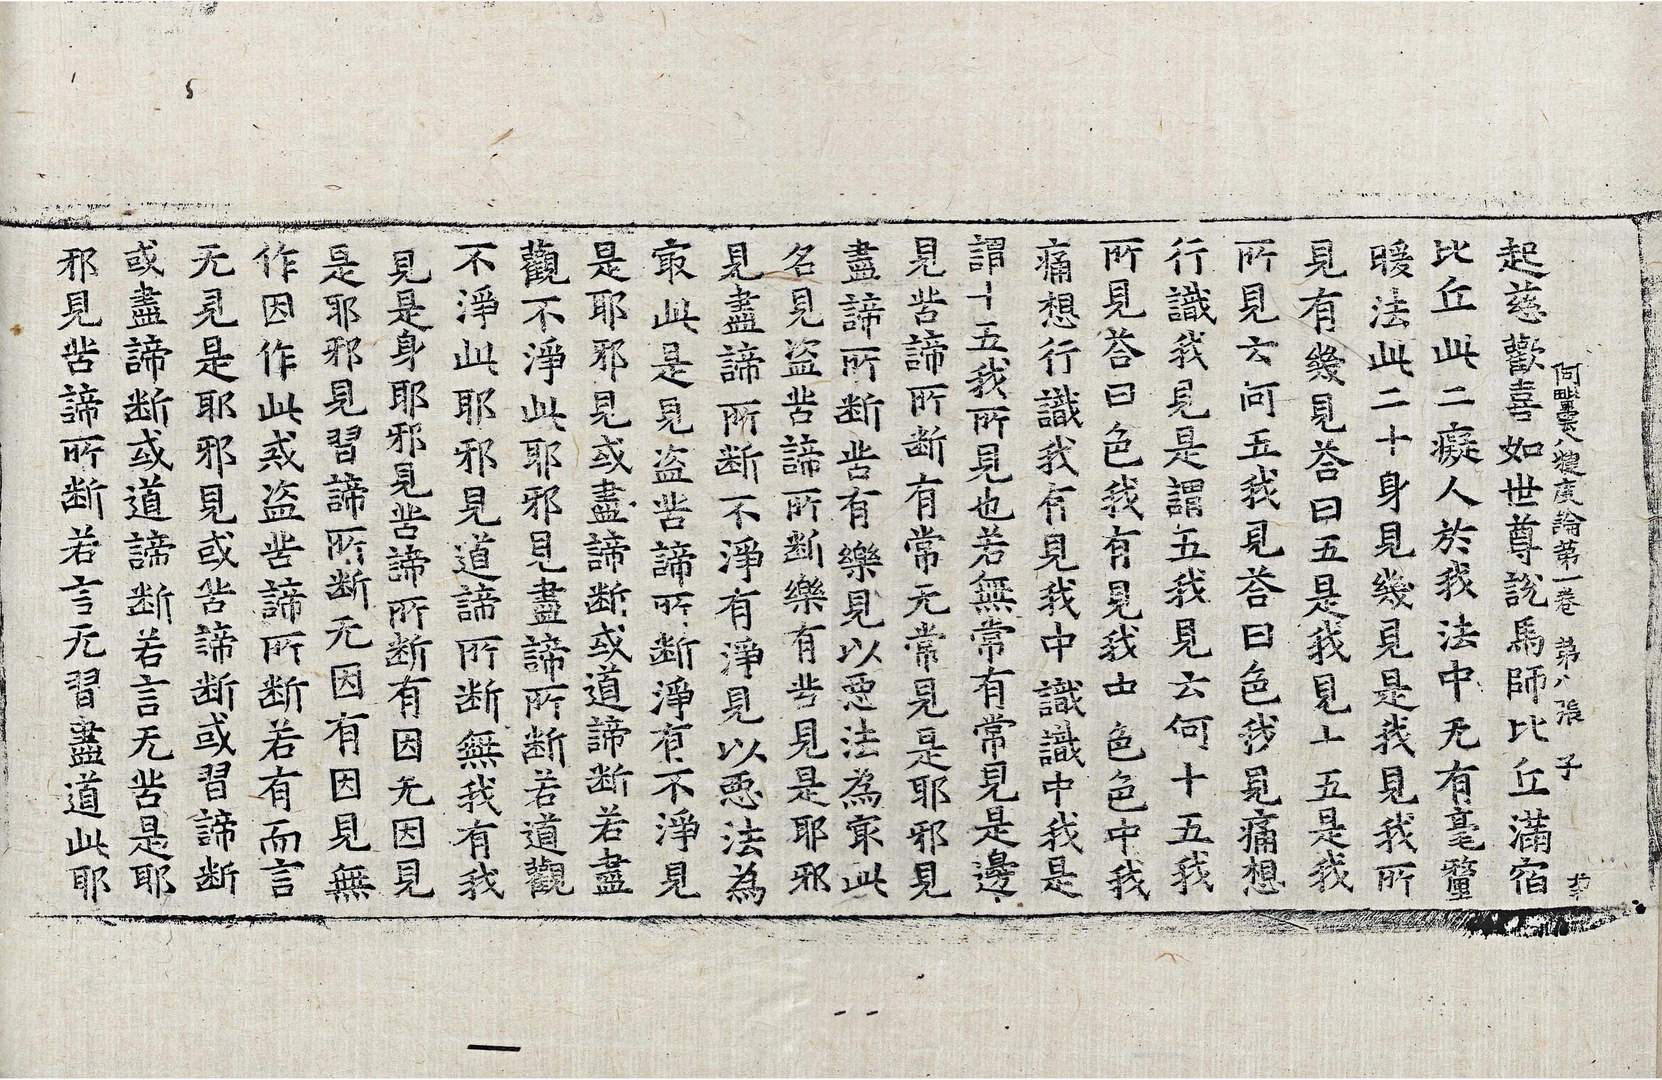 阿毗曇八揵度論第一卷 第八張 子
起慈歡喜如世尊說馬師比丘滿宿
比丘此二癡人於我法中无有毫釐
暖法此二十身見幾見是我見我所
見有幾見荅曰五是我見十五是我
所見云何五我見荅曰色我見痛想
行識我見是謂五我見云何十五我
所見荅曰色我有見我中色色中我
痛想行識我有見我中識識中我是
謂十五我所見也若無常有常見是邊
見苦諦所断有常无常見是耶邪見
盡諦所断苦有樂見以惡法為冣此
名見盗苦諦所断樂有苦見是耶邪
見盡諦所断不淨有淨見以惡法為
冣此是見盗苦諦所断淨有不淨見
是耶邪見或盡諦断或道諦断若盡
觀不淨此耶邪見盡諦所断若道觀
不淨此耶邪見道諦所断無我有我
見是身耶邪見苦諦所断有因无因見
是耶邪見習諦所断无因有因見無
作因作此或盗苦諦所断若有而言
无見是耶邪見或苦諦断或習諦断
或盡諦断或道諦断若言无苦是耶
邪見苦諦所断若言无習盡道此耶